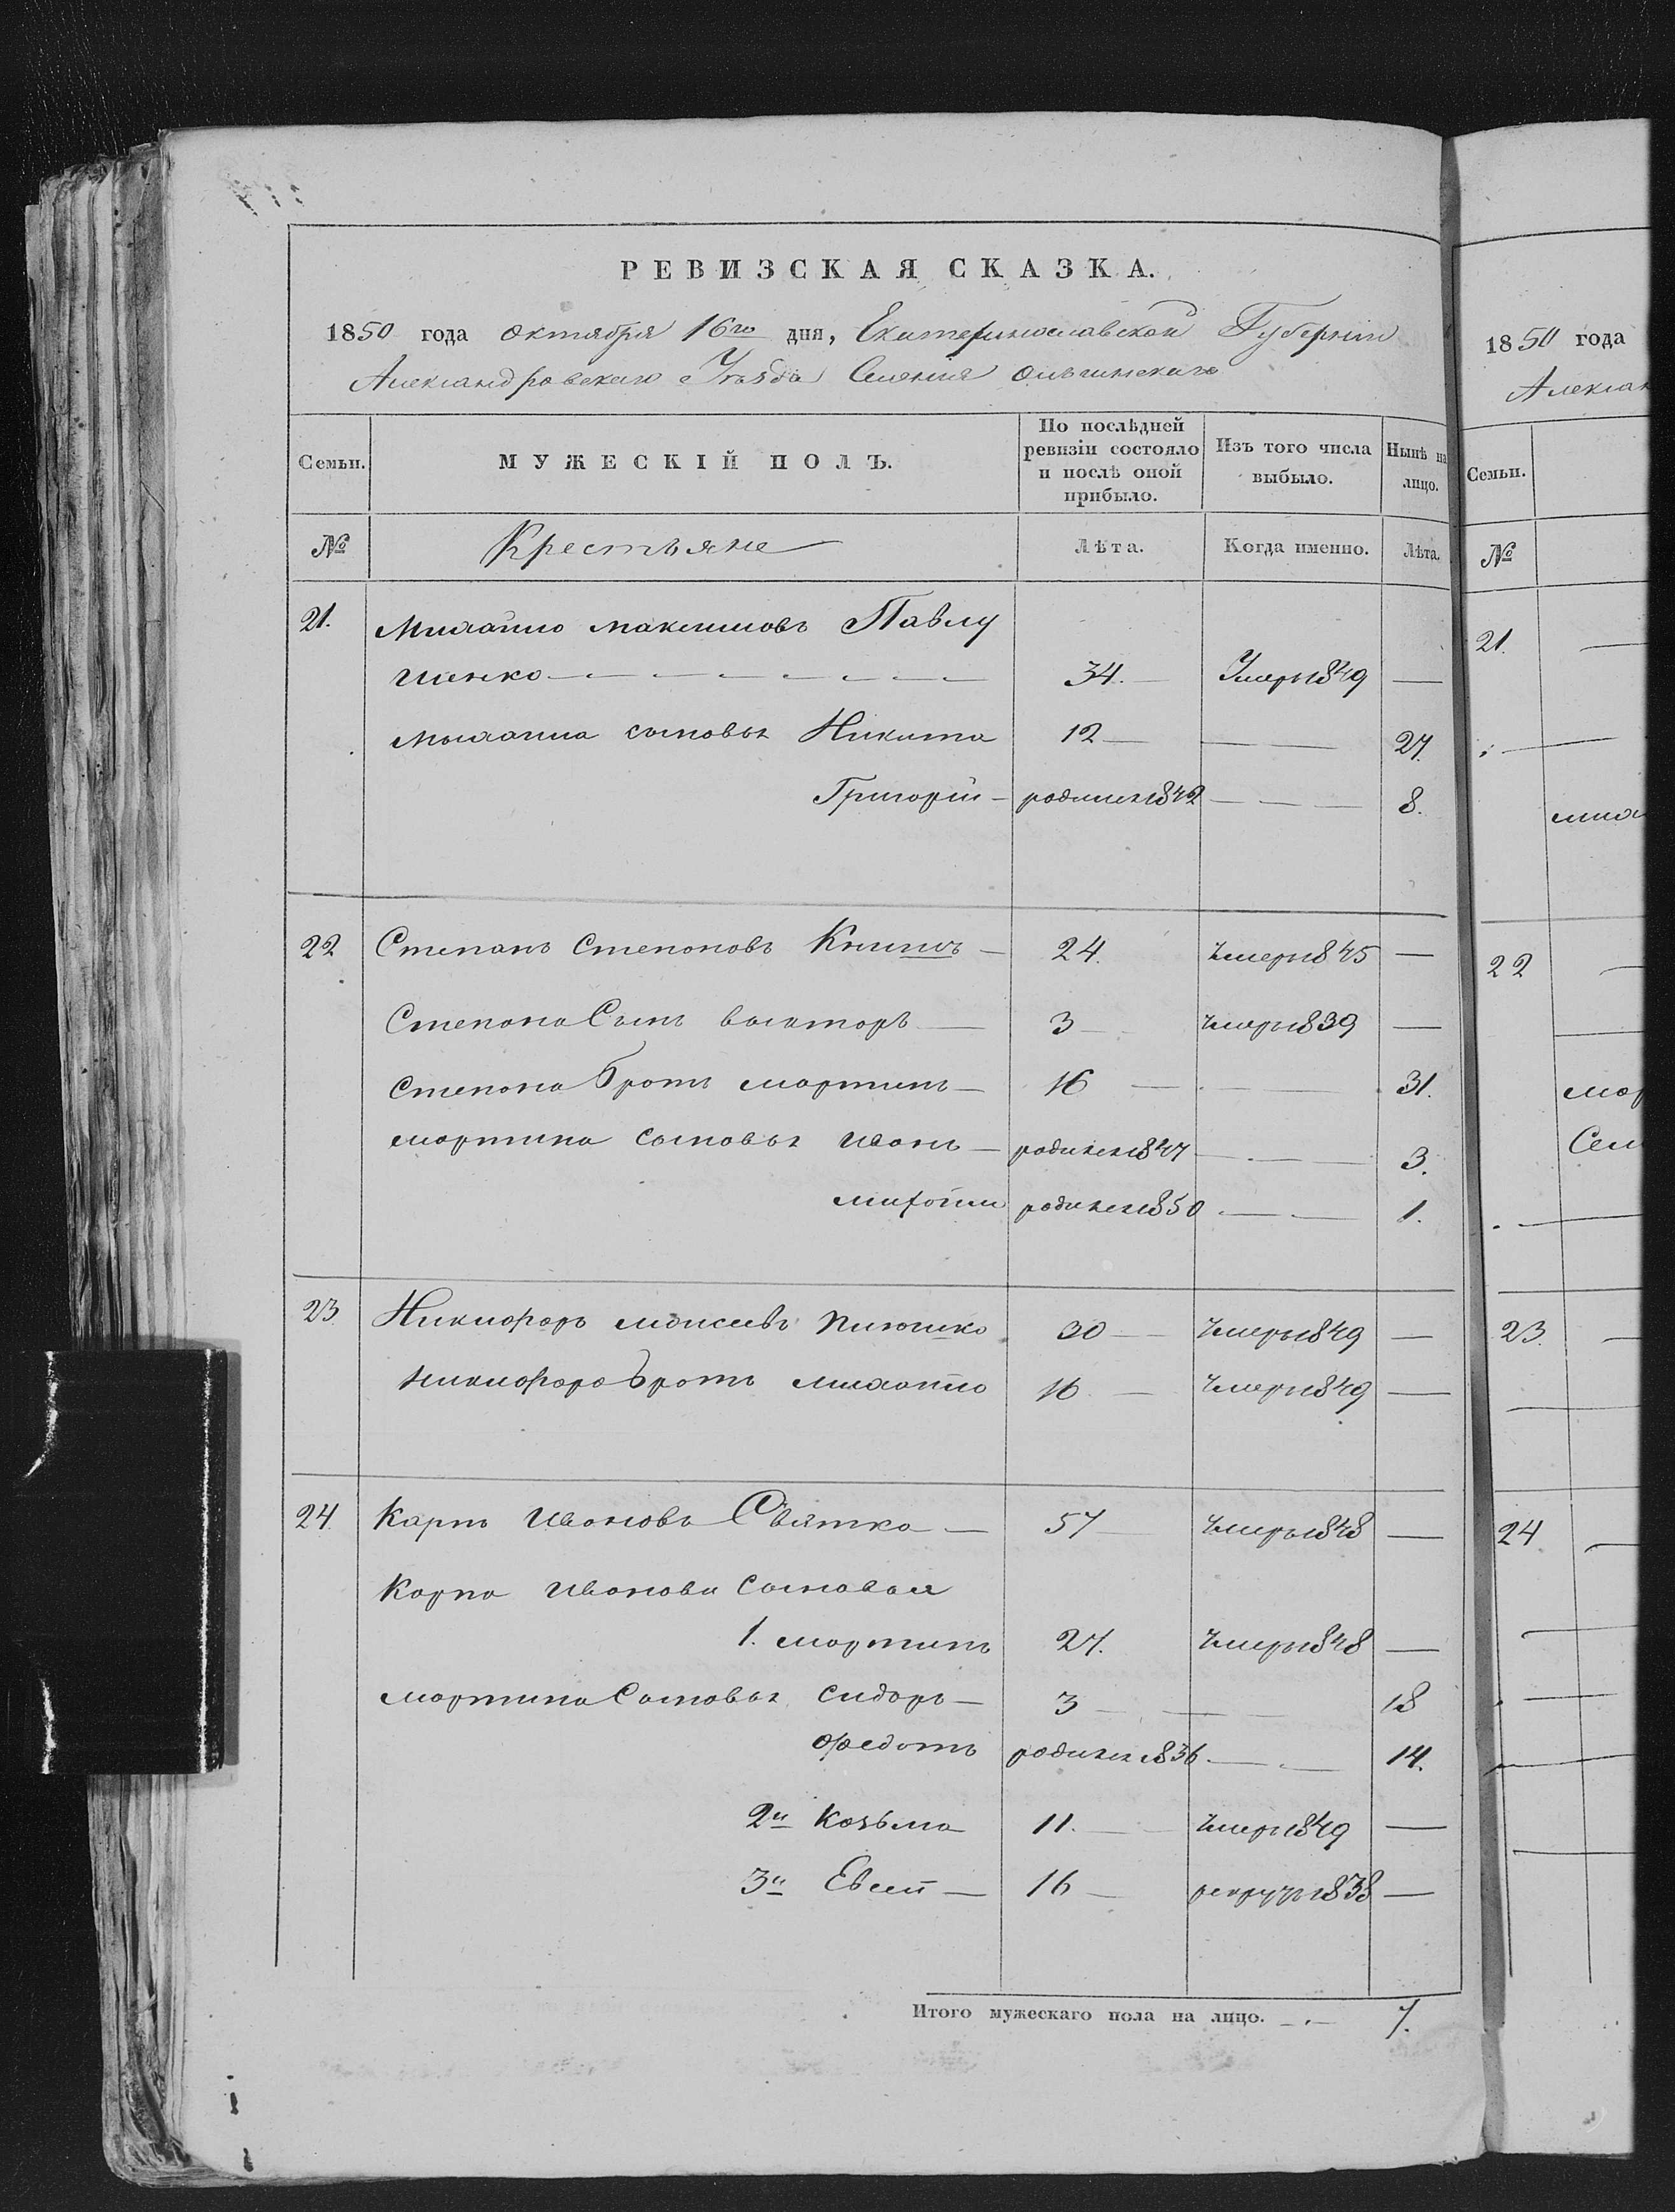 РЕВИЗСКАЯ СКАЗКА.
1850 года октября 16го дня, Екатеринославской Губернии
Александровского Уезда Селения Ольгинскаго
Семьи. МУЖЕСКІЙ ПОЛЪ. По послѣдней ревизіи состояло и послѣ оной прибыло. Изъ того числа выбыло. Нынѣ на лицо.
№ Крестьяне Лѣта. Когда именно. Лѣта.
21. Михайло Максимовъ Павлу
ченко 34. Умеръ 1849 —
Михайла сыновья Никита 12 — 27.
Григорій — родился 1842 — 8.
22 Степанъ Степановъ — 24. Умеръ 1845 —
Степана Сынъ Викторъ — 3 Умеръ 1839 —
Степана Братъ Мартинъ — 16 — 31.
Мартина сыновья Иванъ — родился 1847 — 3.
родился 1850 — 1.
23. Никифоръ Моисеевъ 30 — Умеръ 1849 —
Никифора Братъ Михайло 16 — Умеръ 1849 —
24. Карпъ Ивановъ Святка — 57 Умеръ 1848 —
Карпа Иванова Сыновья
1. Мартинъ 27. Умеръ 1848 —
Мартина Сыновья Сидоръ — 3 — 18
Федотъ родился 1836 — 14.
2й Козьма 11. — Умеръ 1849 —
3й Евсей — 16 — рекруты 1838 —
Итого мужескаго пола на лицо. — 7.
1850 года
Алексан
Семьи.
№
21.
22
23.
24